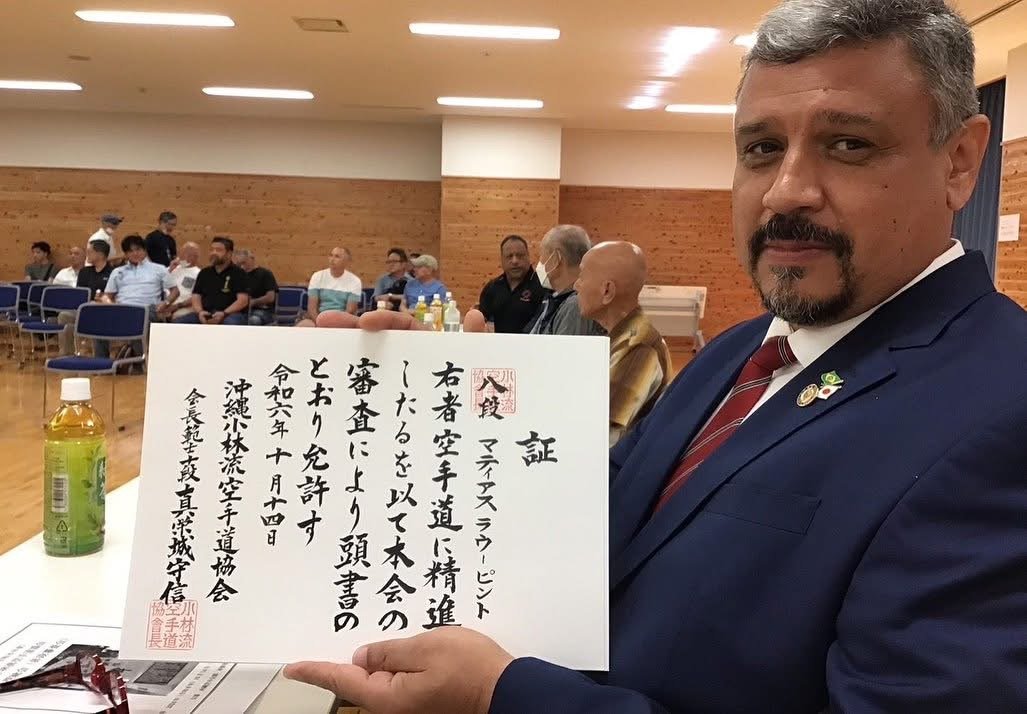 証
八段 マティアス ラウーピント
右者空手道に精進
したるを以て本会の
審査により頭書の
とおり允許す
令和六年十月十四日
沖縄小林流空手道協会
会長範士十段真栄城守信
小林流
空手道
協會長